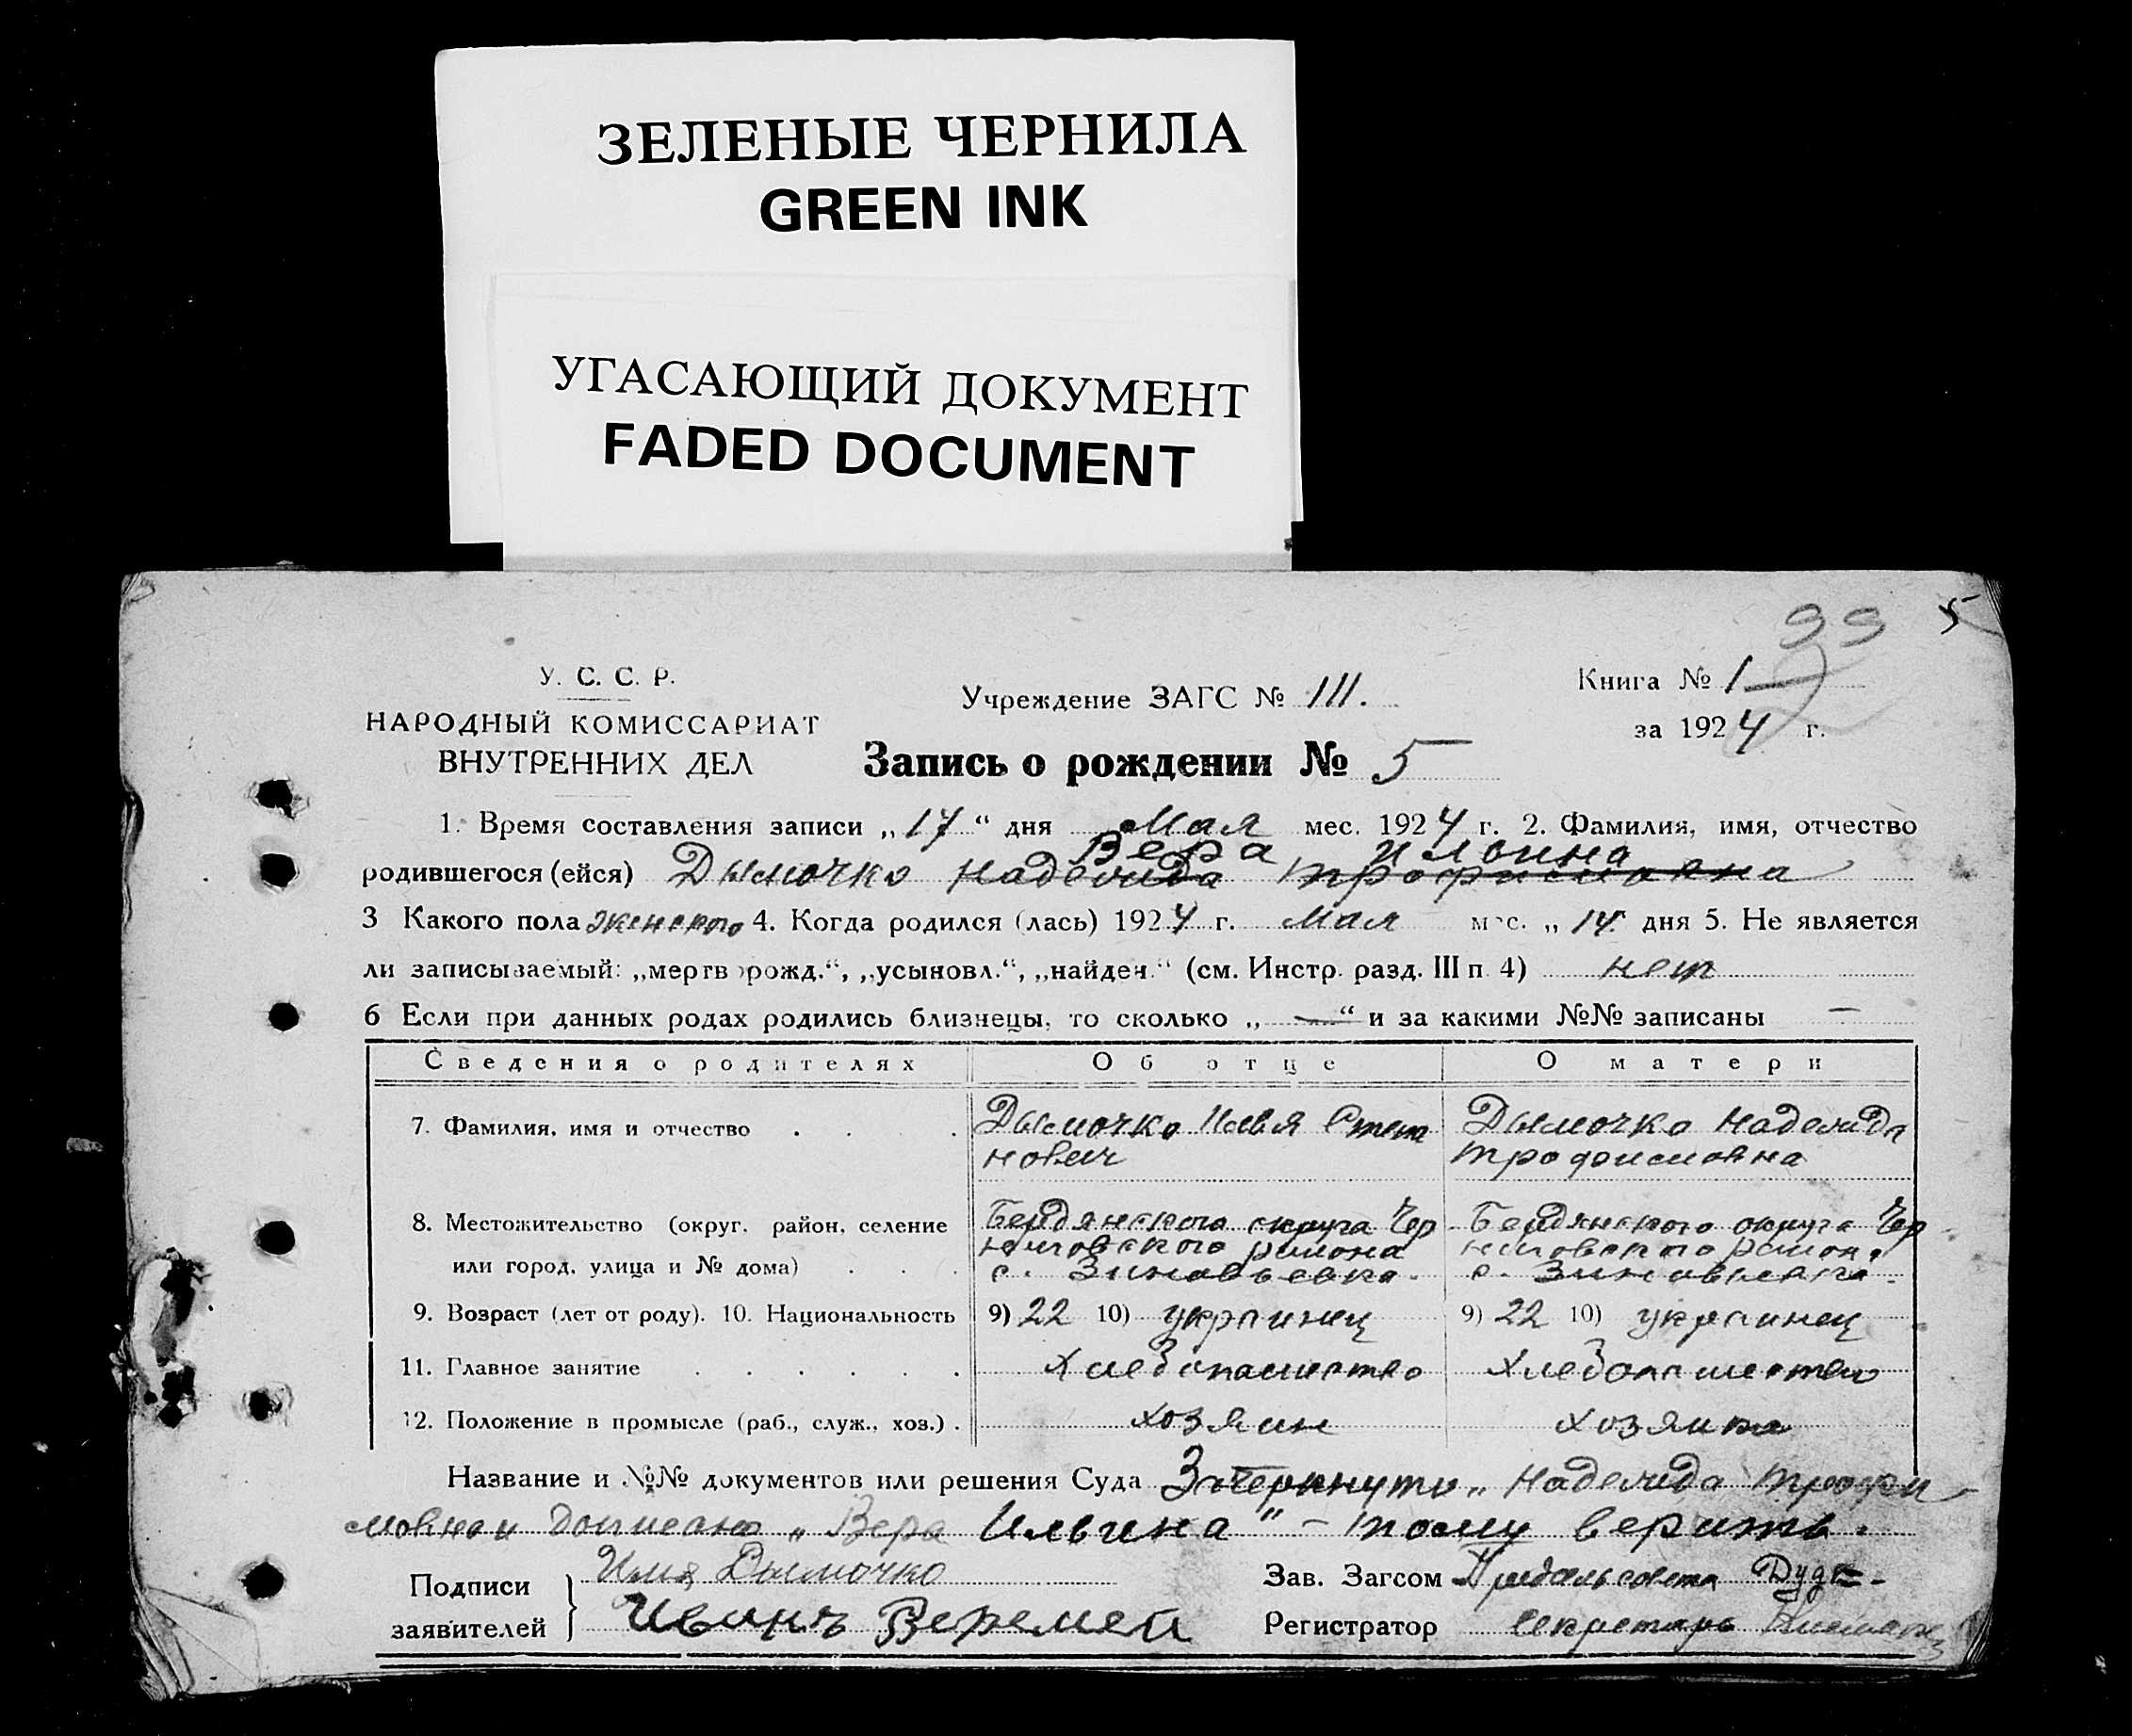 ЗЕЛЕНЫЕ ЧЕРНИЛА
GREEN INK
УГАСАЮЩИЙ ДОКУМЕНТ
FADED DOCUMENT
99 5
У. С. С. Р.
НАРОДНЫЙ КОМИССАРИАТ
ВНУТРЕННИХ ДЕЛ
Учреждение ЗАГС № III.
Книга № 1
за 1924 г.
Запись о рождении № 5
1. Время составления записи „17“ дня Мая мес. 1924 г. 2. Фамилия, имя, отчество
Вера Ильина
родившегося (ейся) Дымочко Надежида Трофимовна
3 Какого пола женского 4. Когда родился (лась) 1924 г. Мая мес. „14“ дня 5. Не является
ли записываемый: „мертворожд.“, „усыновл.“, „найден.“ (см. Инстр. разд. III п. 4) нет
6 Если при данных родах родились близнецы, то сколько „—“ и за какими №№ записаны —
Сведения о родителях Об отце О матери
7. Фамилия, имя и отчество . . . Дымочко Илья Степа Дымочко Надежида
нович Трофимовна
8. Местожительство (округ, район, селение Бердянского округа Чер Бердянского округа Чер
ниговского района ниговского района
или город, улица и № дома) . . . с. Зиновьевка. с. Зиновьевка.
9. Возраст (лет от роду). 10. Национальность 9) 22 10) украинец 9) 22 10) украинец
11. Главное занятие . . . . . . Хлебопашество Хлебопашество
12. Положение в промысле (раб., служ., хоз.) . хозяин хозяйка
Название и №№ документов или решения Суда Зачеркнуто „Надежида Трофи
мовна и дописано „Вера Ильина“ – тому верить.
Подписи заявителей } Илия Дымочко
Иванъ Веремей
Зав. Загсом Предсельсовета Дуд
Регистратор Секретарь